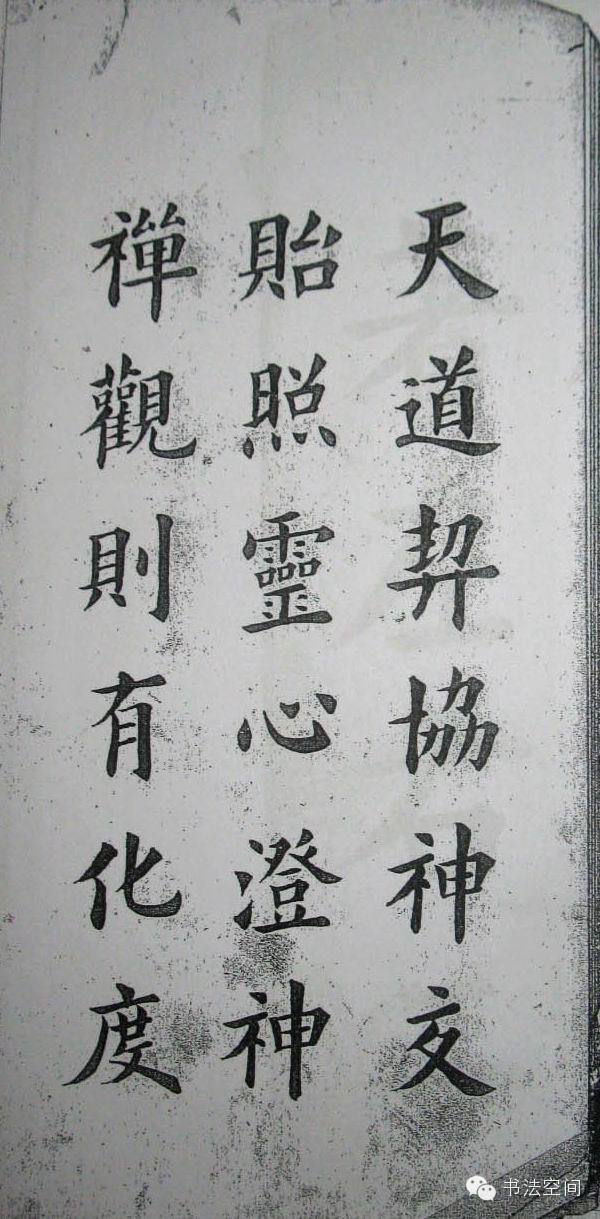 天道契協神交
貽照靈心澄神
禪觀則有化度
书法空间